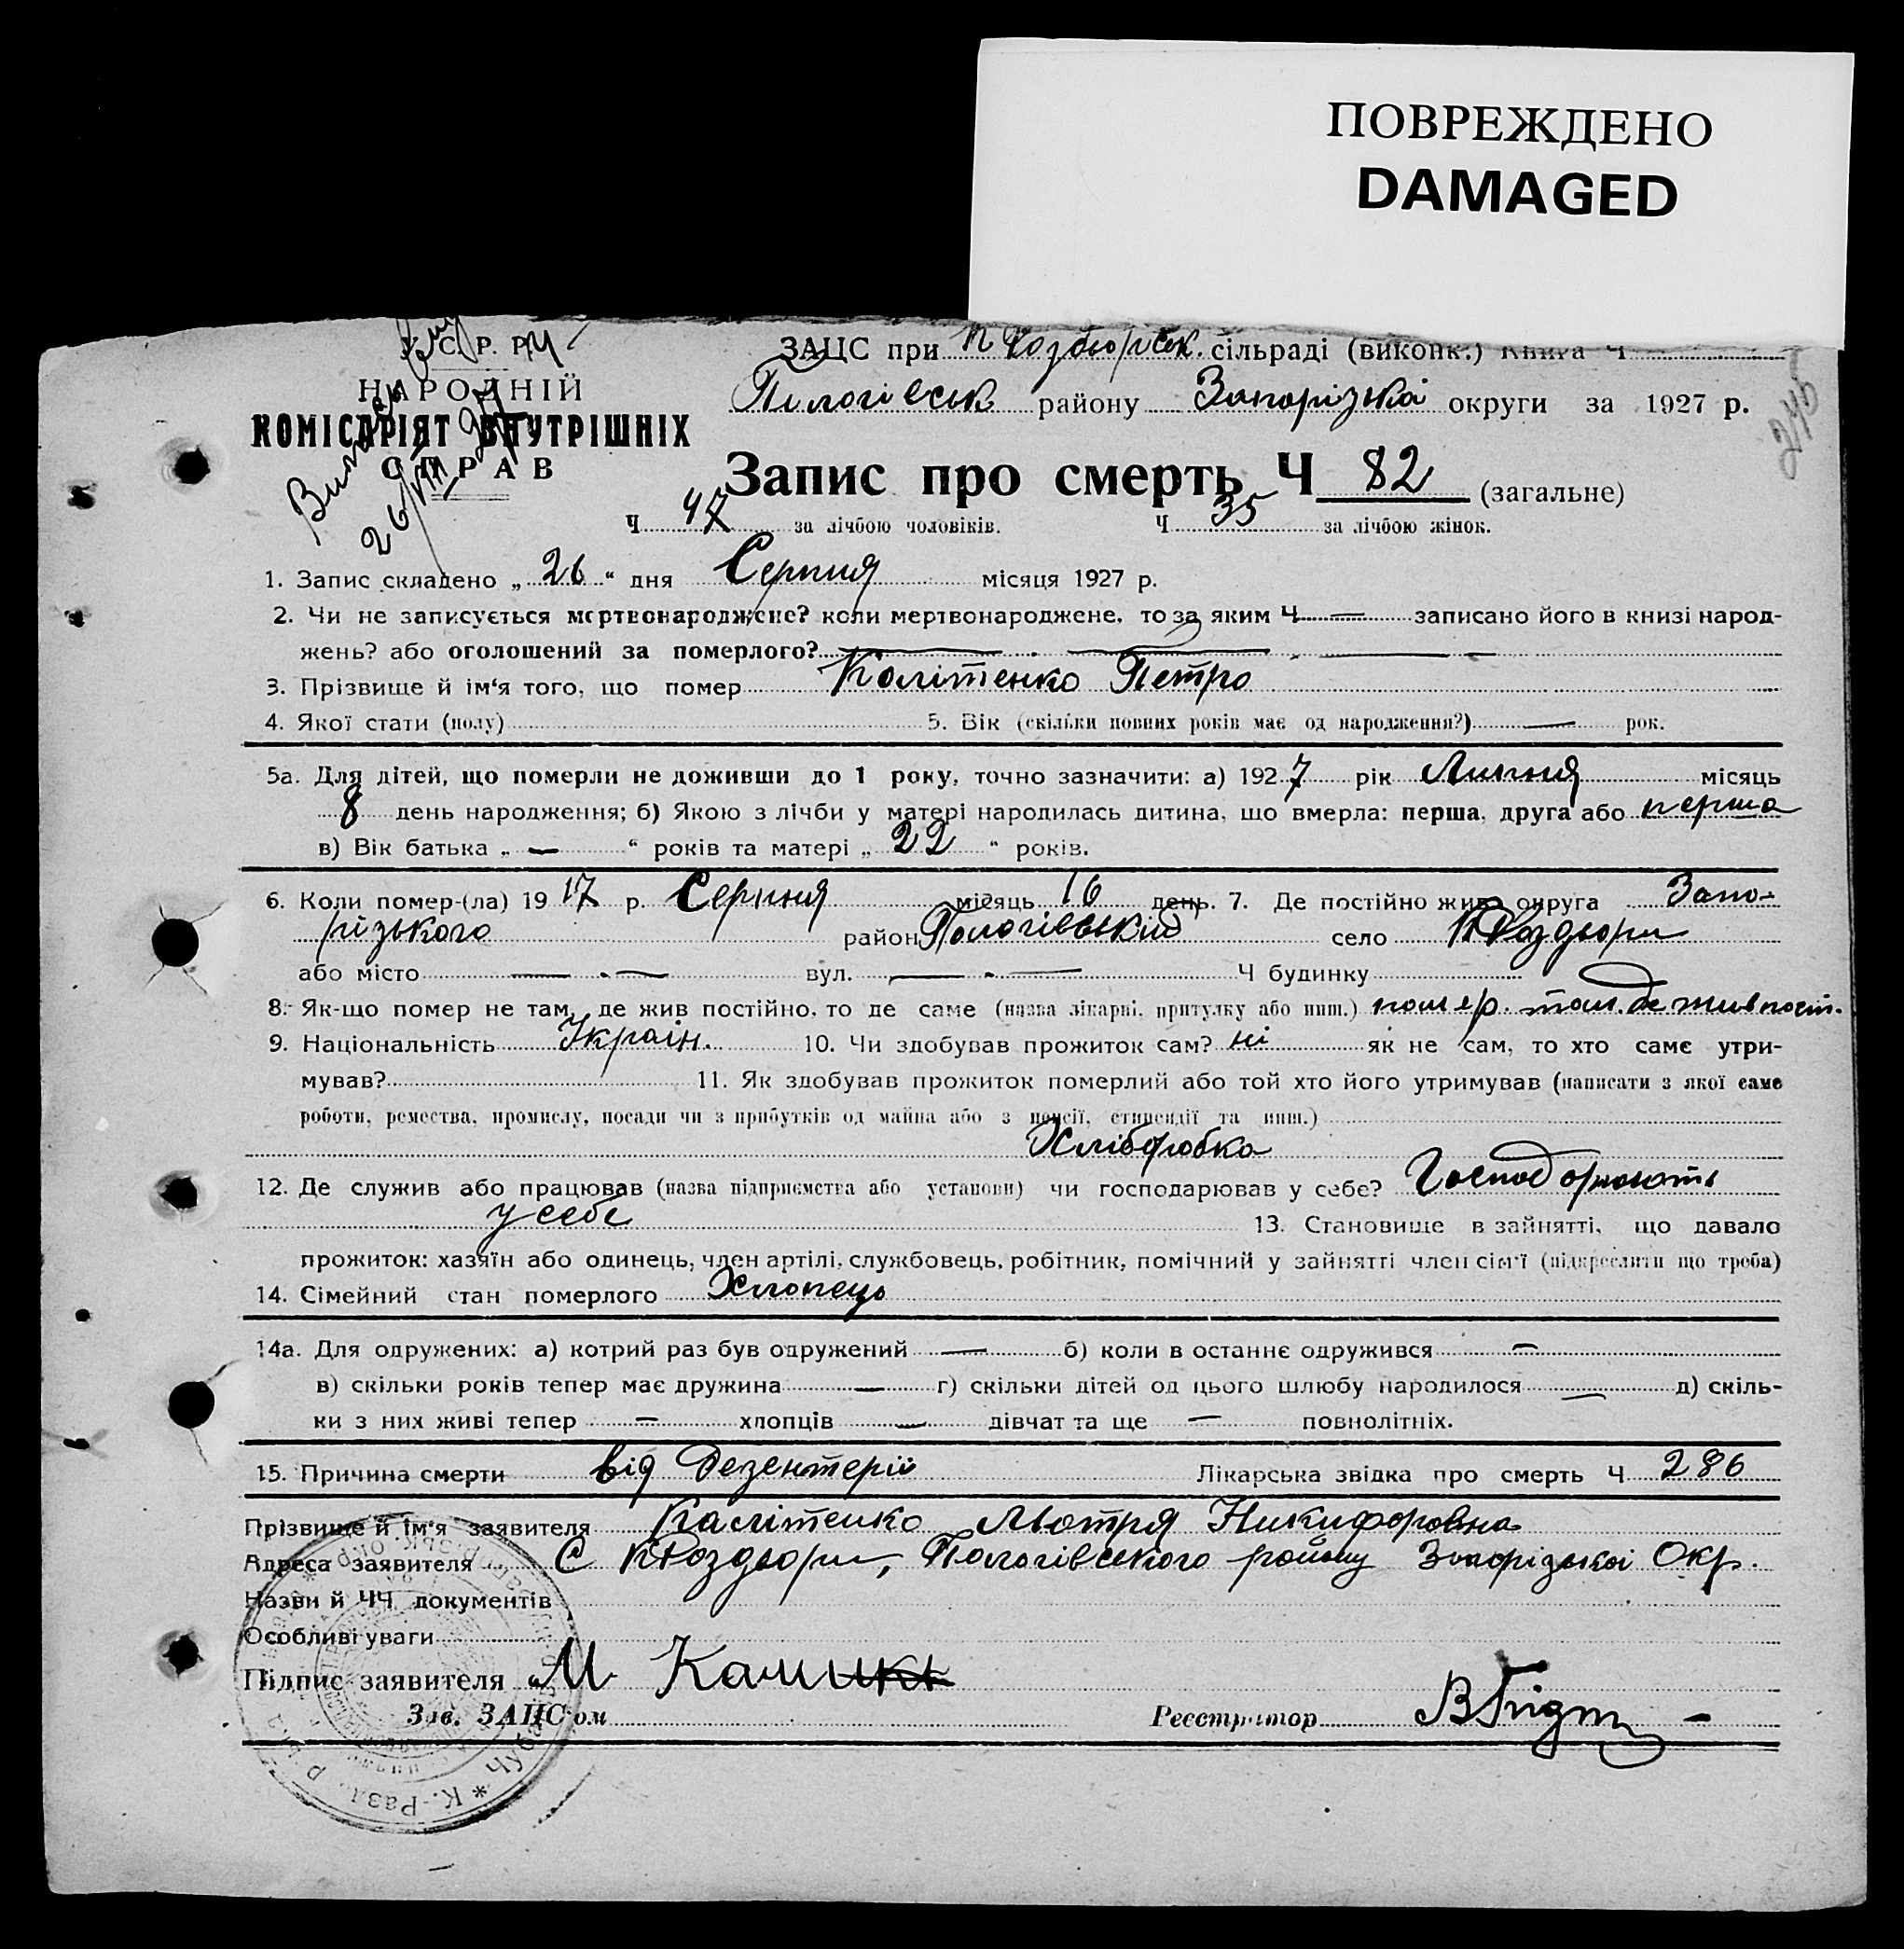 ПОВРЕЖДЕНО
DAMAGED
У. С. Р. Р.
НАРОДНІЙ
КОМІСАРІЯТ ВНУТРІШНІХ
СПРАВ
ЗАЦС при сільраді (виконк.) Книга Ч
Пологівськ району Запорізькоі округи за 1927 р.
Запис про смерть Ч 82 (загальне)
Ч 47 за лічбою чоловіків. Ч 35 за лічбою жінок.
1. Запис складено „ 26 “ дня Серпня місяця 1927 р.
2. Чи не записується мертвонароджене? коли мертвонароджене, то за яким Ч — записано його в книзі народ-
жень? або оголошений за померлого? — . — . — —
3. Прізвище й ім‘я того, що помер Калітенко Петро
4. Якої стати (полу) 5. Вік (скільки повних років має од народження?) — рок.
5а. Для дітей, що померли не доживши до 1 року, точно зазначити: а) 1927 рік Липня місяць
8 день народження; б) Якою з лічби у матері народилась дитина, що вмерла: перша, друга або перша
в) Вік батька „ — “ років та матері „ 22 “ років.
6. Коли помер-(ла) 19 17 р. Серпня місяць 16 день. 7. Де постійно жив округа Запо-
різького район Пологівський село К Роздори
або місто — . — вул. — . — Ч будинку
8. Як-що помер не там, де жив постійно, то де саме (назва лікарні, притулку або инш.) помер. там. де жив пост.
9. Національність Украін. 10. Чи здобував прожиток сам? ні як не сам, то хто саме утри-
мував? 11. Як здобував прожиток померлий або той хто його утримував (написати з якої саме
роботи, ремества, промислу, посади чи з прибутків од майна або з пенсії, стипендії та инш.)
Хлібробка
12. Де служив або працював (назва підприємства або установи) чи господарював у себе? Господорюють
у себе 13. Становище в зайнятті, що давало
прожиток: хазяїн або одинець, член артілі, службовець, робітник, помічний у зайнятті член сім‘ї (підкреслити що треба)
14. Сімейний стан померлого Хлопець
14а. Для одружених: а) котрий раз був одружений — б) коли в останнє одружився —
в) скільки років тепер має дружина — г) скільки дітей од цього шлюбу народилося — д) скіль-
ки з них живі тепер — хлопців — дівчат та ще — повнолітніх.
15. Причина смерти від Дезентеріи Лікарська звідка про смерть Ч 286
Прізвище й ім‘я заявителя Калітенко Мотря Никифоровна
Адреса заявителя С К Роздори, Пологівского району Запорізькоі Окр.
Назви й ЧЧ документів
Особливі уваги
Підпис заявителя М
Зав. ЗАЦС‘ом Реєстратор